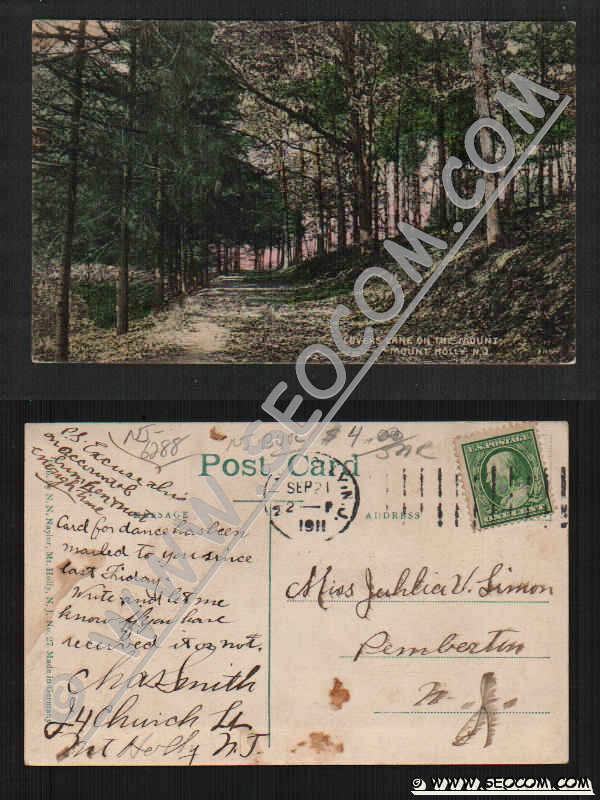 LOVERS LANE ON THE MOUNT.
MOUNT HOLLY, N.J.
© WWW.SEOCOM.COM
NJ-
6288
$4.00
P.S. Excuse this
on account of
not enough time
Post Card
MESSAGE
ADDRESS
SEP 21
2 - P
1911
N.J.
U.S. POSTAGE
ONE CENT
Card for dance has been
mailed to you since
last Friday.
Write and let me
know if you have
received it or not.
Chas Smith
24 Church St
Mt Holly N.J.
Miss Juhlia V. Simon
Pemberton
N. J.
N. N. Naylor, Mt. Holly, N. J. No. 27. Made in Germany
© WWW.SEOCOM.COM